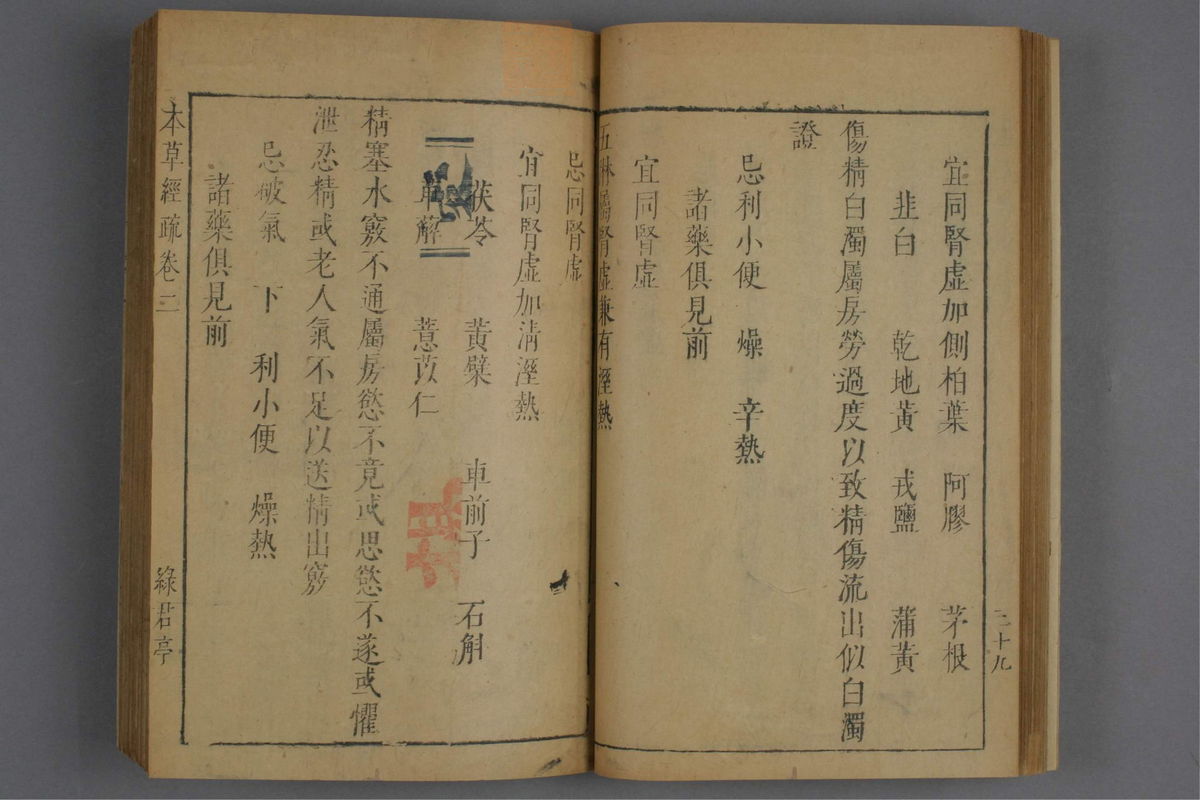 三十九
宜同腎虛加側柏葉 阿膠 茅根
韭白 乾地黃 戎鹽 蒲黃
傷精白濁屬房勞過度以致精傷流出似白濁
證
忌利小便 燥 辛熱
諸藥俱見前
宜同腎虛
五淋屬腎虛兼有溼熱
忌同腎虛
宜同腎虛加淸溼熱
茯苓 黃檗 車前子 石斛
萆薢 薏苡仁
精塞水竅不通屬房慾不竟或思慾不遂或懼
泄忍精或老人氣不足以送精出竅
忌破氣 下 利小便 燥熱
諸藥俱見前
本草經疏卷二 綠君亭